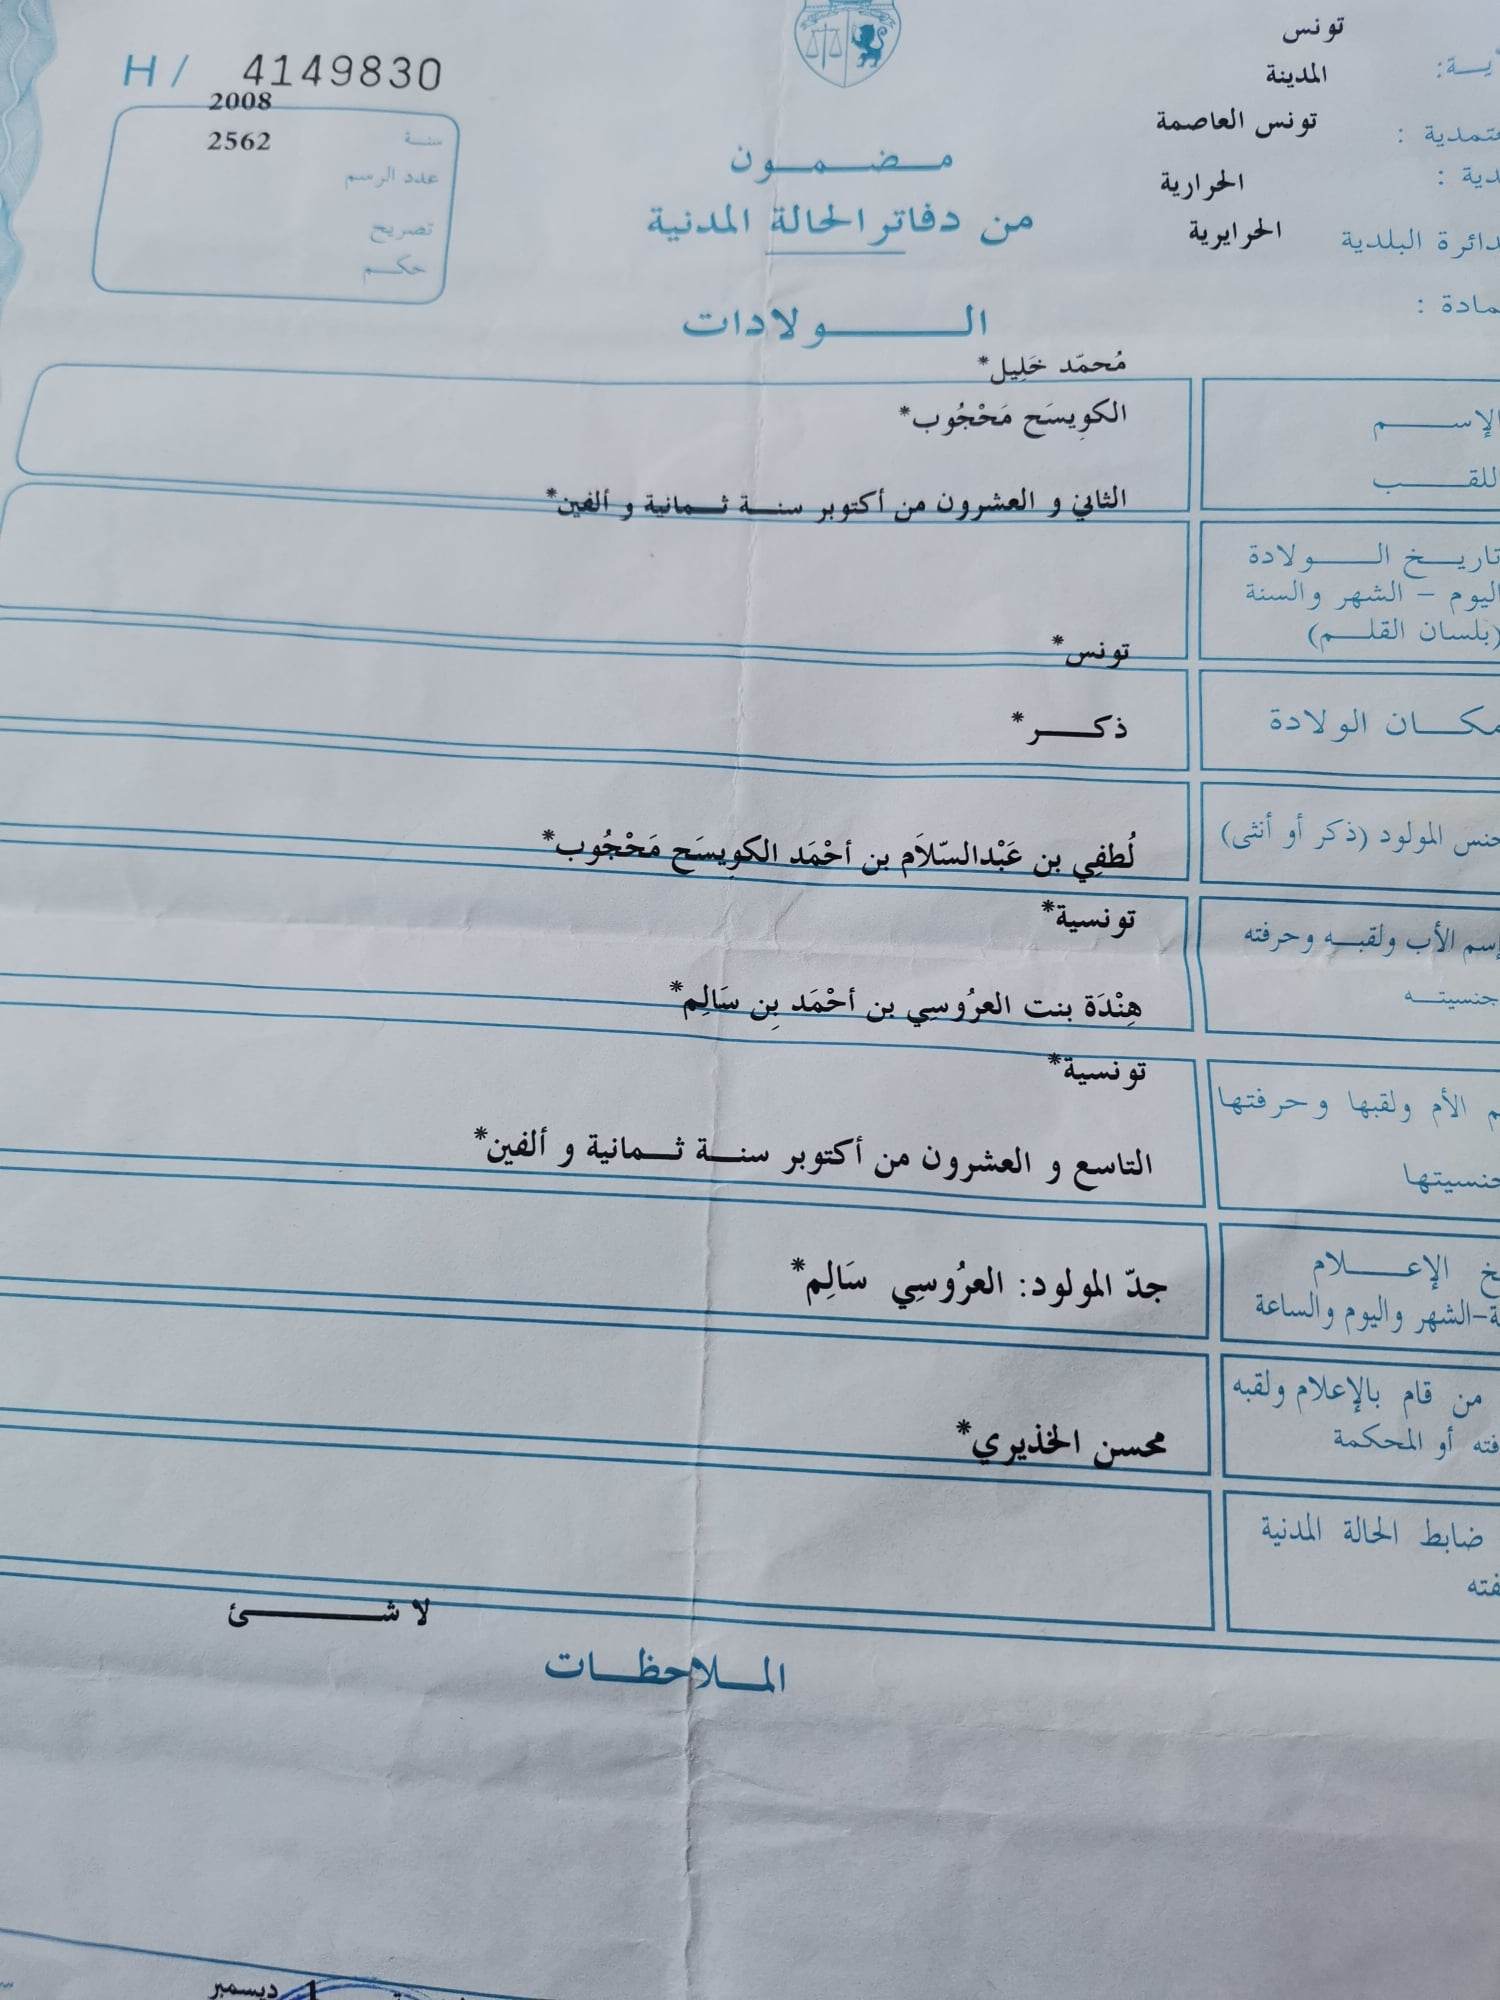 H / 4149830
2008
سنة
2562
عدد الرسم
تصريح
حكم
تونس
المدينة
تونس العاصمة
الحرارية
الحرايرية
دائرة البلدية
مضمون
من دفاتر الحالة المدنية
الولادات
مُحمّد خَلِيل*
الإسم
الكوِيسَح مَحْجُوب*
اللقب
الثاني و العشرون من أكتوبر سنة ثمانية و ألفين*
تاريخ الولادة
اليوم – الشهر والسنة
(بلسان القلم)
تونس*
مكان الولادة
ذكر*
جنس المولود (ذكر أو أنثى)
لُطفِي بن عَبْدالسّلاَم بن أحْمَد الكوِيسَح مَحْجُوب*
إسم الأب ولقبه وحرفته
تونسية*
جنسيته
هِنْدَة بنت العرُوسِي بن أحْمَد بِن سَالِم*
الأم ولقبها وحرفتها
تونسية*
جنسيتها
التاسع و العشرون من أكتوبر سنة ثمانية و ألفين*
الإعلام
-الشهر واليوم والساعة
جدّ المولود: العرُوسِي سَالِم*
من قام بالإعلام ولقبه
أو المحكمة
محسن الخذيري*
ضابط الحالة المدنية
لا شئ
الملاحظات
1 ديسمبر